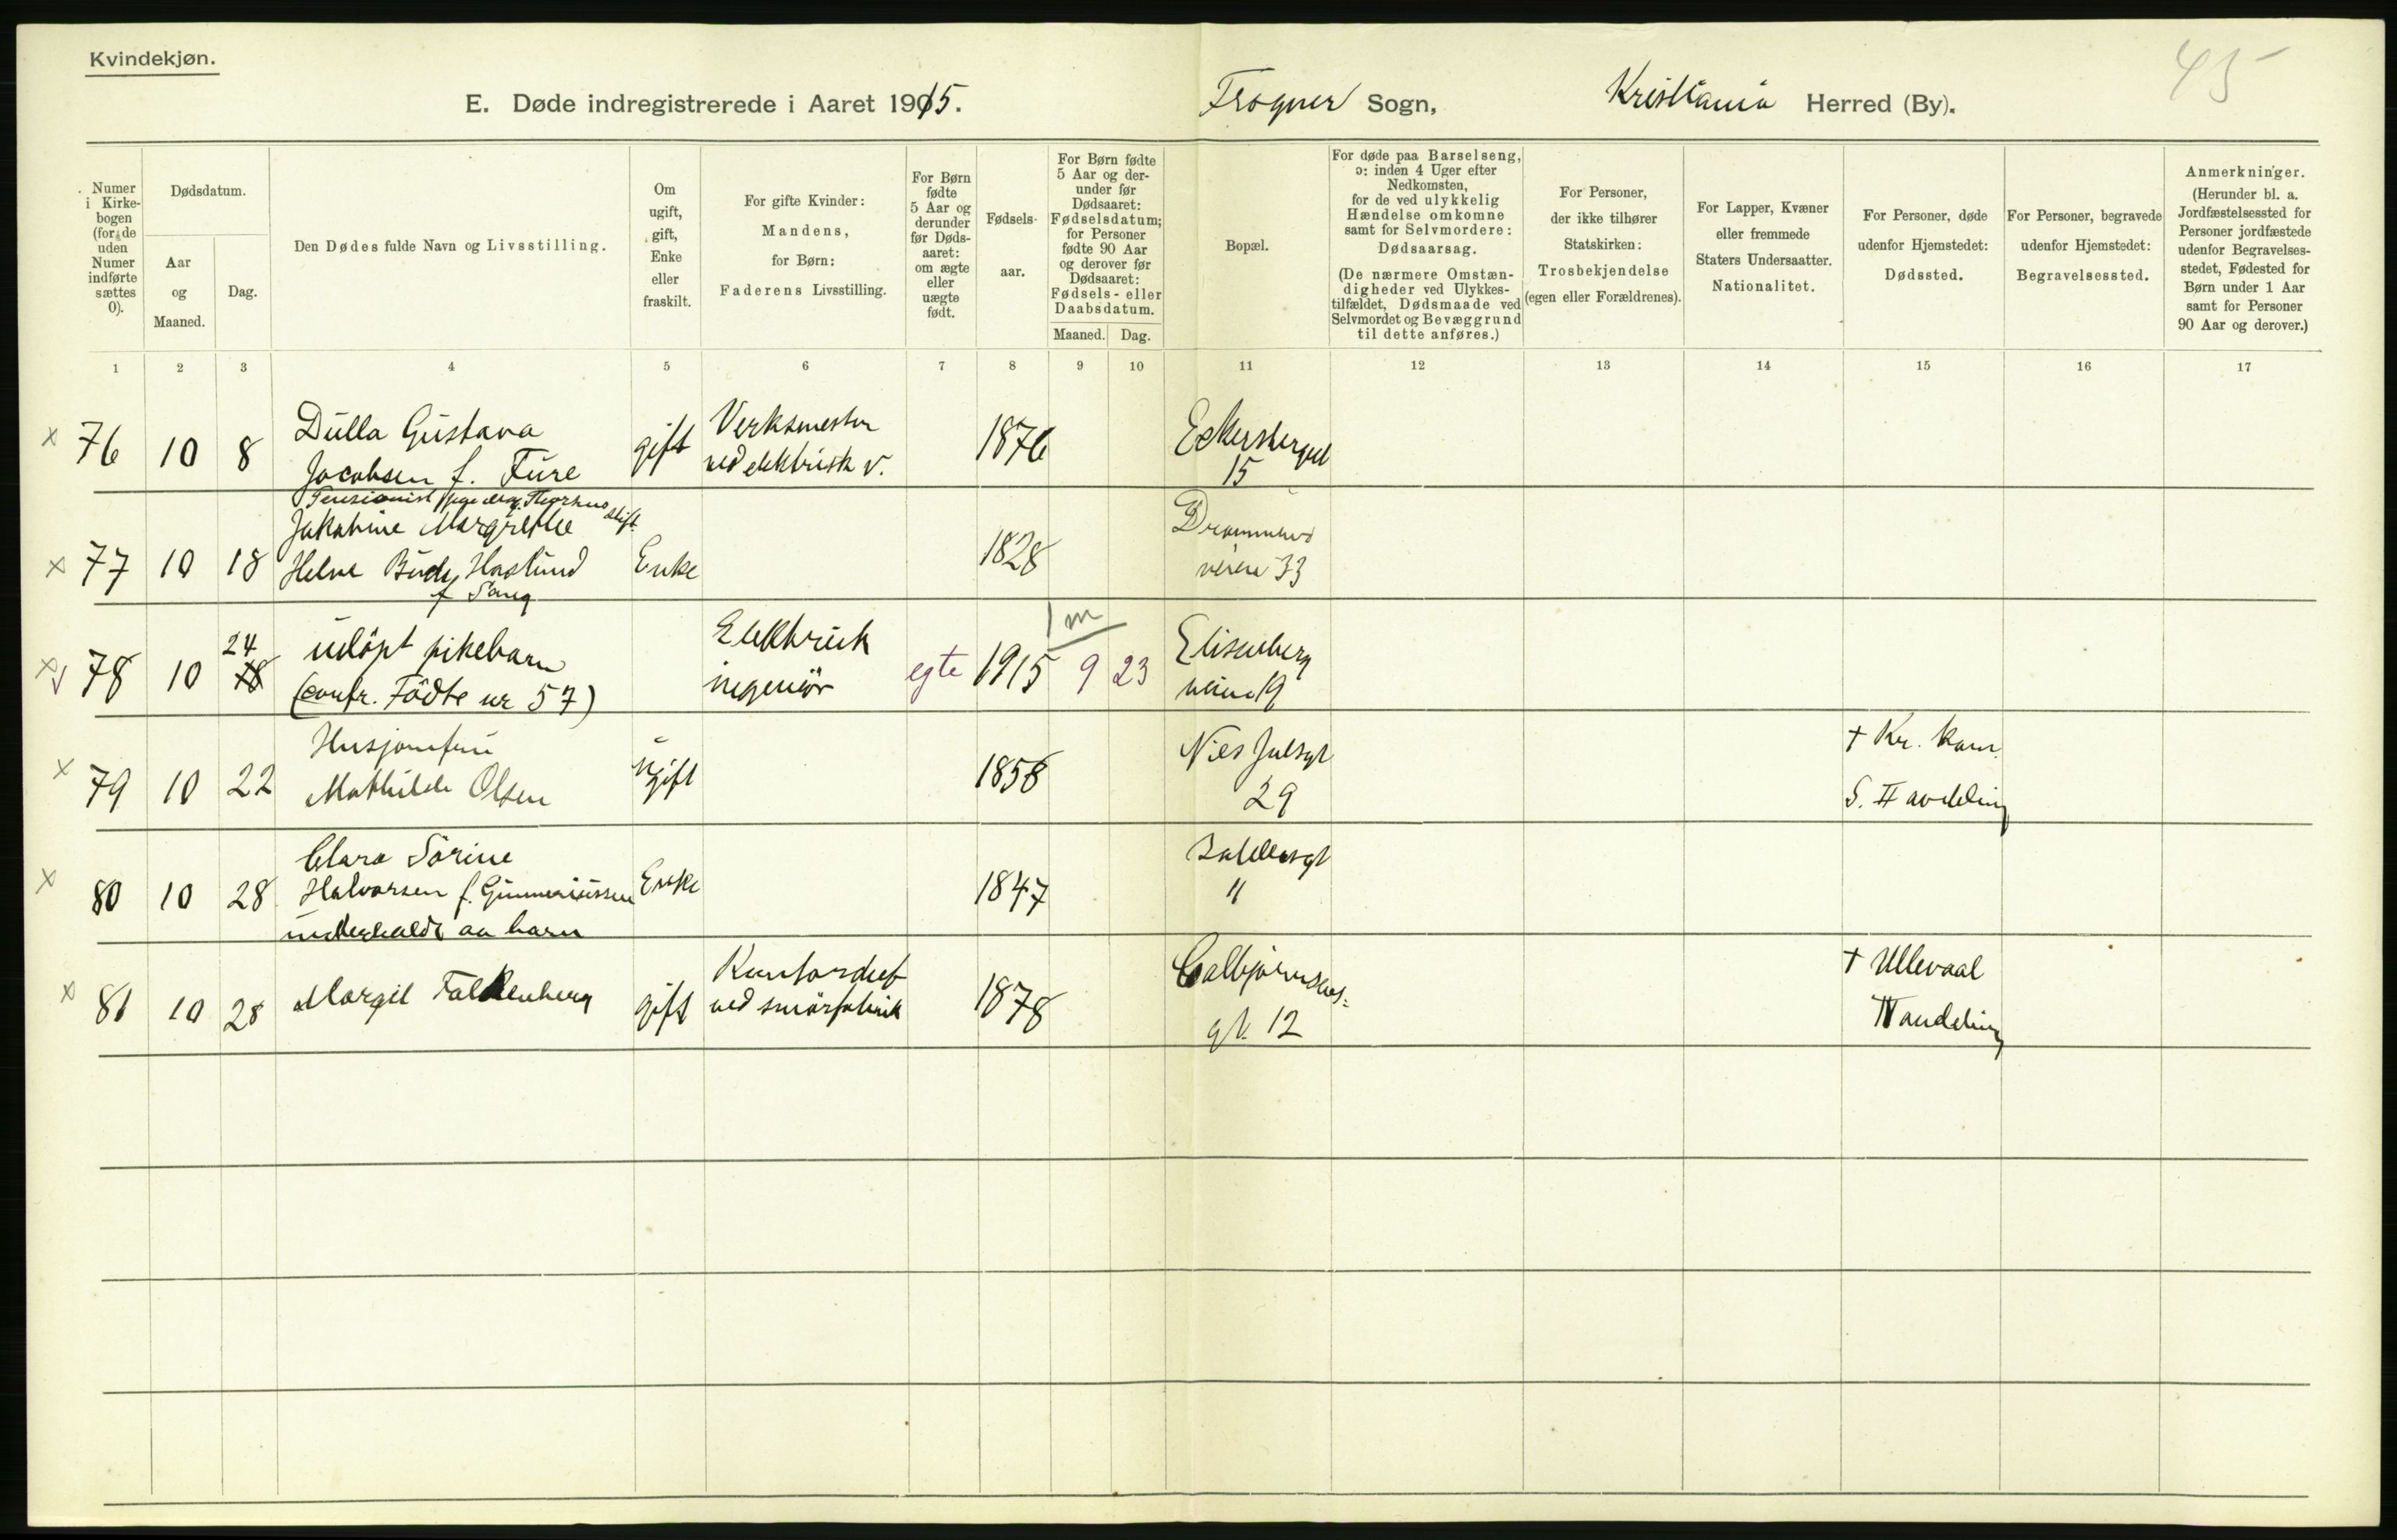 Kvindekjøn.
45
E. Døde indregistrerede i Aaret 1915. Frogner Sogn, Kristiania Herred (By).
Numer
i Kirke-
bogen
(for de
uden
Numer
indførte
sættes
0).
Dødsdatum.
Aar
og
Maaned.
Dag.
Den Dødes fulde Navn og Livsstilling.
Om
ugift,
gift,
Enke
eller
fraskilt.
For gifte Kvinder:
Mandens,
for Børn:
Faderens Livsstilling.
For Børn
fødte
5 Aar og
derunder
før Døds-
aaret:
om ægte
eller
uægte
født.
Fødsels-
aar.
For Børn fødte
5 Aar og der-
under før
Dødsaaret:
Fødselsdatum;
for Personer
fødte 90 Aar
og derover før
Dødsaaret:
Fødsels- eller
Daabsdatum.
Maaned. Dag.
Bopæl.
For døde paa Barselseng,
ɔ: inden 4 Uger efter
Nedkomsten,
for de ved ulykkelig
Hændelse omkomne
samt for Selvmordere:
Dødsaarsag.
(De nærmere Omstæn-
digheder ved Ulykkes-
tilfældet, Dødsmaade ved
Selvmordet og Bevæggrund
til dette anføres.)
For Personer,
der ikke tilhører
Statskirken:
Trosbekjendelse
(egen eller Forældrenes).
For Lapper, Kvæner
eller fremmede
Staters Undersaatter.
Nationalitet.
For Personer, døde
udenfor Hjemstedet:
Dødssted.
For Personer, begravede
udenfor Hjemstedet:
Begravelsessted.
Anmerkninger.
(Herunder bl. a.
Jordfæstelsessted for
Personer jordfæstede
udenfor Begravelses-
stedet, Fødested for
Børn under 1 Aar
samt for Personer
90 Aar og derover.)
1 2 3 4 5 6 7 8 9 10 11 12 13 14 15 16 17
x 76 10 8
Dulla Gustava
Jacobsen f. Fure
gift
Verksmester
ved elektrisk v.
1876
Eckersbergvt
15
x 77 10 18
Pensionist
Jakobine Margrethe
Helne Budy Haslund
f
Enke
1828
Drammens
veien 33
x v 78 10 24 18
udøpt pikebarn
(confr. Födte nr 57)
Elektrisk
ingeniör
egte 1915 9 23
1 m
Elisenberg
veien 19
x 79 10 22
Husjomfru
Mathilde Olsen
ugift
1858
Niels Julsgt
29
† Kr. kom.
S. II avdeling
x 80 10 28
Clara Sörine
Halvorsen f. Gunneriussen
underholdt av barn
Enke
1847
Baldersgt
11
x 81 10 28
Margit Falkenberg
gift
Kontorchef
ved smörfabrik
1878
Colbjørnsens-
gt. 12
† Ullevaal
IV avdeling